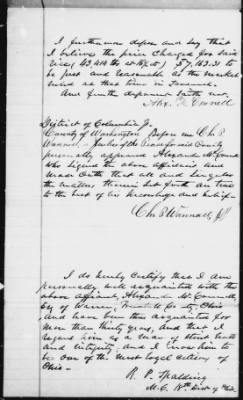 I furthermore depose and say that
I believe the price charged for said
rice (43,414 lbs at $) $7,163.31 to
be just and reasonable as the market
ruled at that time in Savannah.
And further deponent saith not.
Alex. McConnell
District of Columbia
County of Washington Before me Ch. S
Wannall a Justice of the Peace for said County
personally appeared Alexander McConnell
who signed the above affidavit and
made oath that all and singular
the matters therein set forth are true
to the best of his knowledge and belief.
Ch S Wannall JP
I do hereby certify that I am
personally well acquainted with the
above affiant, Alexander McConnell,
of Ohio
and have been thus acquainted for
more than thirty years, and that I
regard him as a man of strict truth
and integrity, and I know him to
be one of the most loyal citizens of
Ohio.
R. P. Spalding
M.C. 18th Dist of Ohio